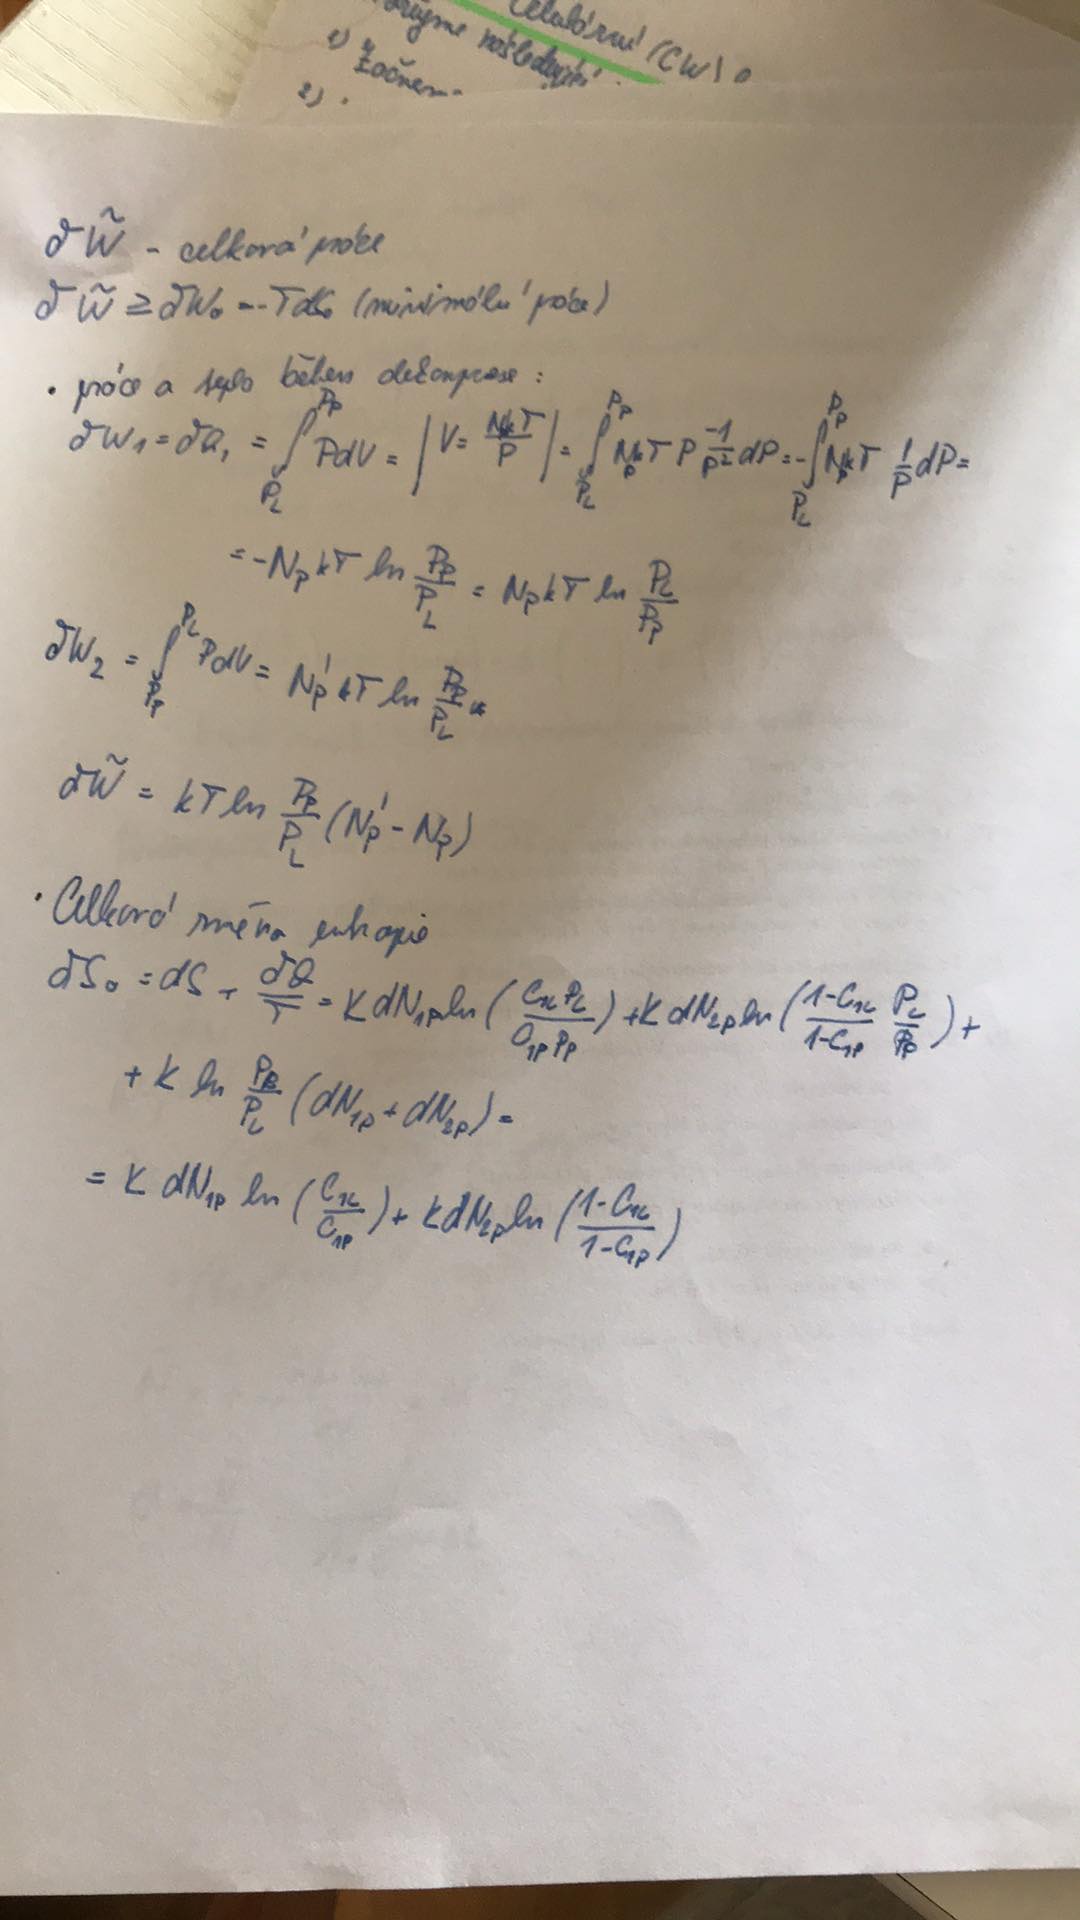 Celulární (CW)
následující
1) Začnem
2)
δW̃ - celková práce
δW̃ ≥ δW₀ = -TdS₀ (minimální práce)
• práce a teplo během dekomprese:
δW₁ = δQ₁ = ∫_{P_L}^{P_P} PdV = |V = NkT/P| = ∫_{P_L}^{P_P} N_P kT P -1/P² dP = -∫_{P_L}^{P_P} N_P kT 1/P dP =
= -N_P kT ln P_P/P_L = N_P kT ln P_L/P_P
δW₂ = ∫_{P_P}^{P_L} PdV = N_P' kT ln P_P/P_L
δW̃ = kT ln P_P/P_L (N_P' - N_P)
• Celková změna entropie
dS₀ = dS + δQ/T = k dN_{1P} ln (C_{1L} P_L / C_{1P} P_P) + k dN_{2P} ln (1-C_{1L}/1-C_{1P} P_L/P_P) +
+ k ln P_P/P_L (dN_{1P} + dN_{2P}) =
= k dN_{1P} ln (C_{1L}/C_{1P}) + k dN_{2P} ln (1-C_{1L}/1-C_{1P})